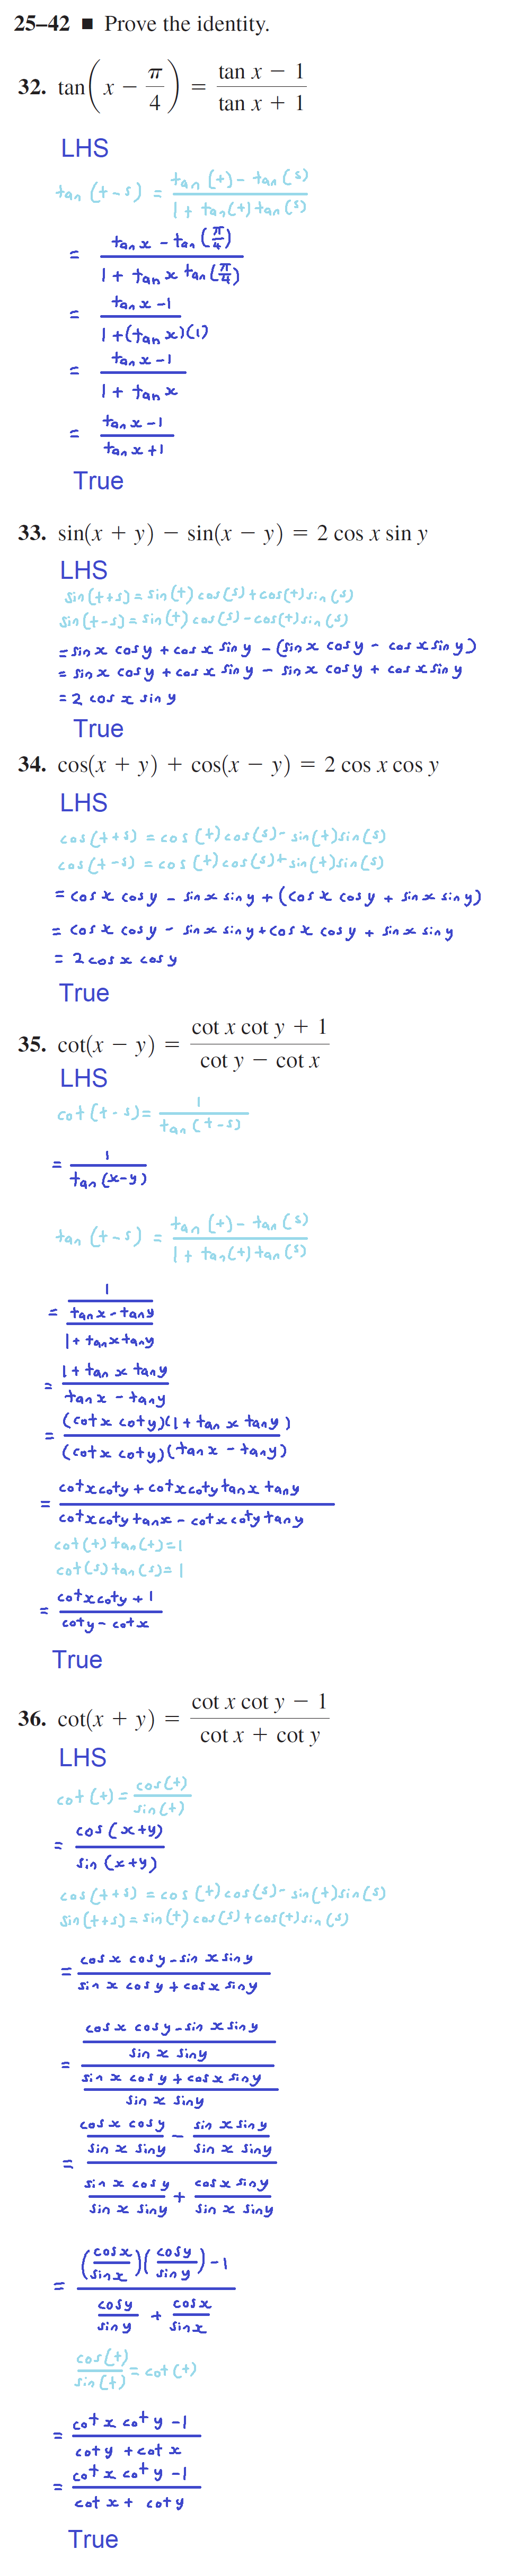 25–42 ■ Prove the identity.
32. tan(x − π/4) = (tan x − 1)/(tan x + 1)
LHS
tan (t-s) = (tan (t) - tan (s))/(1 + tan(t) tan (s))
= (tan x - tan (π/4))/(1 + tan x tan (π/4))
= (tan x - 1)/(1 + (tan x)(1))
= (tan x - 1)/(1 + tan x)
= (tan x - 1)/(tan x + 1)
True
33. sin(x + y) − sin(x − y) = 2 cos x sin y
LHS
sin (t+s) = sin (t) cos (s) + cos(t) sin (s)
sin (t-s) = sin (t) cos (s) - cos(t) sin (s)
= sin x cos y + cos x sin y - (sin x cos y - cos x sin y)
= sin x cos y + cos x sin y - sin x cos y + cos x sin y
= 2 cos x sin y
True
34. cos(x + y) + cos(x − y) = 2 cos x cos y
LHS
cos (t+s) = cos (t) cos(s) - sin(t) sin(s)
cos (t-s) = cos (t) cos(s) + sin(t) sin(s)
= cos x cos y - sin x sin y + (cos x cos y + sin x sin y)
= cos x cos y - sin x sin y + cos x cos y + sin x sin y
= 2 cos x cos y
True
35. cot(x − y) = (cot x cot y + 1)/(cot y − cot x)
LHS
cot (t-s) = 1/(tan (t-s))
= 1/(tan (x-y))
tan (t-s) = (tan (t) - tan (s))/(1 + tan(t) tan (s))
= 1/((tan x - tan y)/(1 + tan x tan y))
= (1 + tan x tan y)/(tan x - tan y)
= ((cot x cot y)(1 + tan x tan y))/((cot x cot y)(tan x - tan y))
= (cot x cot y + cot x cot y tan x tan y)/(cot x cot y tan x - cot x cot y tan y)
cot (t) tan (t) = 1
cot (s) tan (s) = 1
= (cot x cot y + 1)/(cot y - cot x)
True
36. cot(x + y) = (cot x cot y − 1)/(cot x + cot y)
LHS
cot (t) = cos(t)/sin(t)
= cos (x+y)/sin (x+y)
cos (t+s) = cos (t) cos(s) - sin(t) sin(s)
sin (t+s) = sin (t) cos (s) + cos(t) sin (s)
= (cos x cos y - sin x sin y)/(sin x cos y + cos x sin y)
= ((cos x cos y - sin x sin y)/(sin x sin y))/((sin x cos y + cos x sin y)/(sin x sin y))
= ((cos x cos y)/(sin x sin y) - (sin x sin y)/(sin x sin y))/((sin x cos y)/(sin x sin y) + (cos x sin y)/(sin x sin y))
= ((cos x/sin x)(cos y/sin y) - 1)/(cos y/sin y + cos x/sin x)
cos(t)/sin(t) = cot (t)
= (cot x cot y - 1)/(cot y + cot x)
= (cot x cot y - 1)/(cot x + cot y)
True